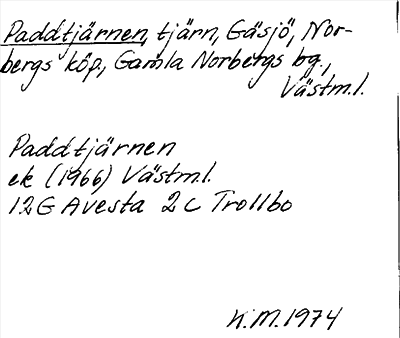 Paddtjärnen, tjärn, Gäsjö, Nor-
bergs köp, Gamla Norbergs bg.,
Västml.
Paddtjärnen
ek (1966) Västml.
12G Avesta 2c Trollbo
K.M. 1974